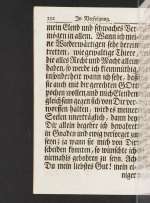 352 In Verfolgung.
mein Elend und schwaches Ver-
mögen in allem. Wann ich mei-
ne Wiederwärtigen sehe herein
tretten, wie gewaltige Thiere,
die alles Recht und Macht allein
haben, so werde ich kleinmüthig,
insonderheit wann ich sehe, daß
sie auch mit der gerechten
pochen wollen und mich Elenden
gleichsam gegen sich von Dir ver-
worffen halten, wird es meiner
Seelen unerträglich, dann bey
Dir allein begehre ich
in Gnaden und ewig verforget zu
seyn; ja wann sie mich von Dir
scheiden könten, so wünschte ich
niemahls gebohren zu seyn. Ach
Du mein liebstes Gut! mein ei-
niger